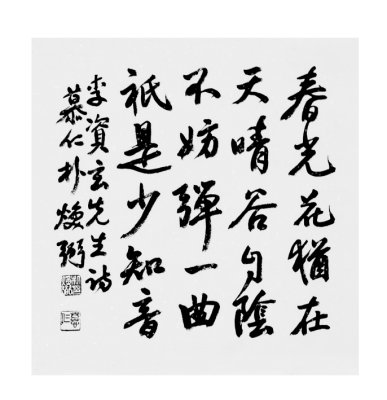 春光花猶在
天晴谷自陰
不妨彈一曲
祇是少知音
李資玄先生詩
慕仁朴煥弼